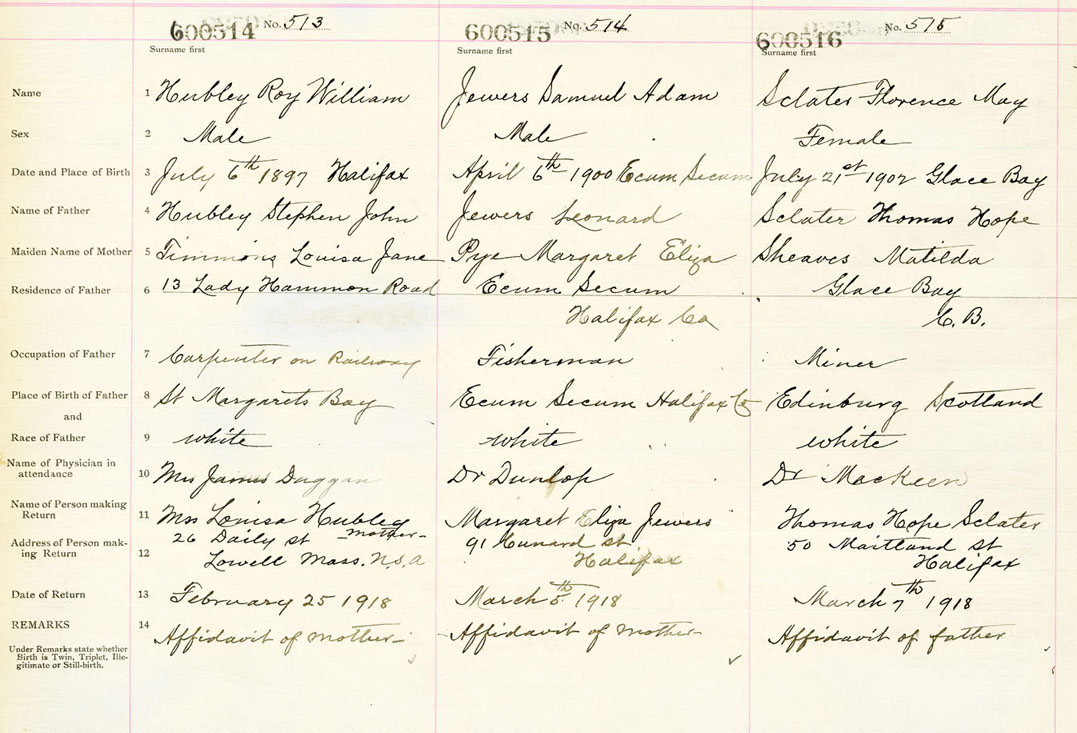 600514 No. 513 600515 No. 514 600516 No. 515
Surname first Surname first Surname first
Name 1 Hubley Roy William Jewers Samuel Adam Sclater Florence May
Sex 2 Male Male Female
Date and Place of Birth 3 July 6th 1897 Halifax April 6th 1900 Ecum Secum July 21st 1902 Glace Bay
Name of Father 4 Hubley Stephen John Jewers Leonard Sclater Thomas Hope
Maiden Name of Mother 5 Timmons Louisa Jane Pye Margaret Eliza Sheaves Matilda
Residence of Father 6 13 Lady Hammon Road Ecum Secum Glace Bay
Halifax Co C.B.
Occupation of Father 7 Carpenter on Railway Fisherman Miner
Place of Birth of Father 8 St Margarets Bay Ecum Secum Halifax Co Edinburg Scotland
and
Race of Father 9 white white white
Name of Physician in
attendance 10 Mrs James Duggan Dr Dunlop Dr MacKeen
Name of Person making
Return 11 Mrs Louisa Hubley Margaret Eliza Jewers Thomas Hope Sclater
mother
Address of Person mak-
ing Return 12 26 Daily st 91 Cunard st 50 Maitland st
Lowell Mass. U.S.A Halifax Halifax
Date of Return 13 February 25 1918 March 5th 1918 March 7th 1918
REMARKS 14 Affidavit of mother Affidavit of mother Affidavit of father
Under Remarks state whether
Birth is Twin, Triplet, Ille-
gitimate or Still-birth.